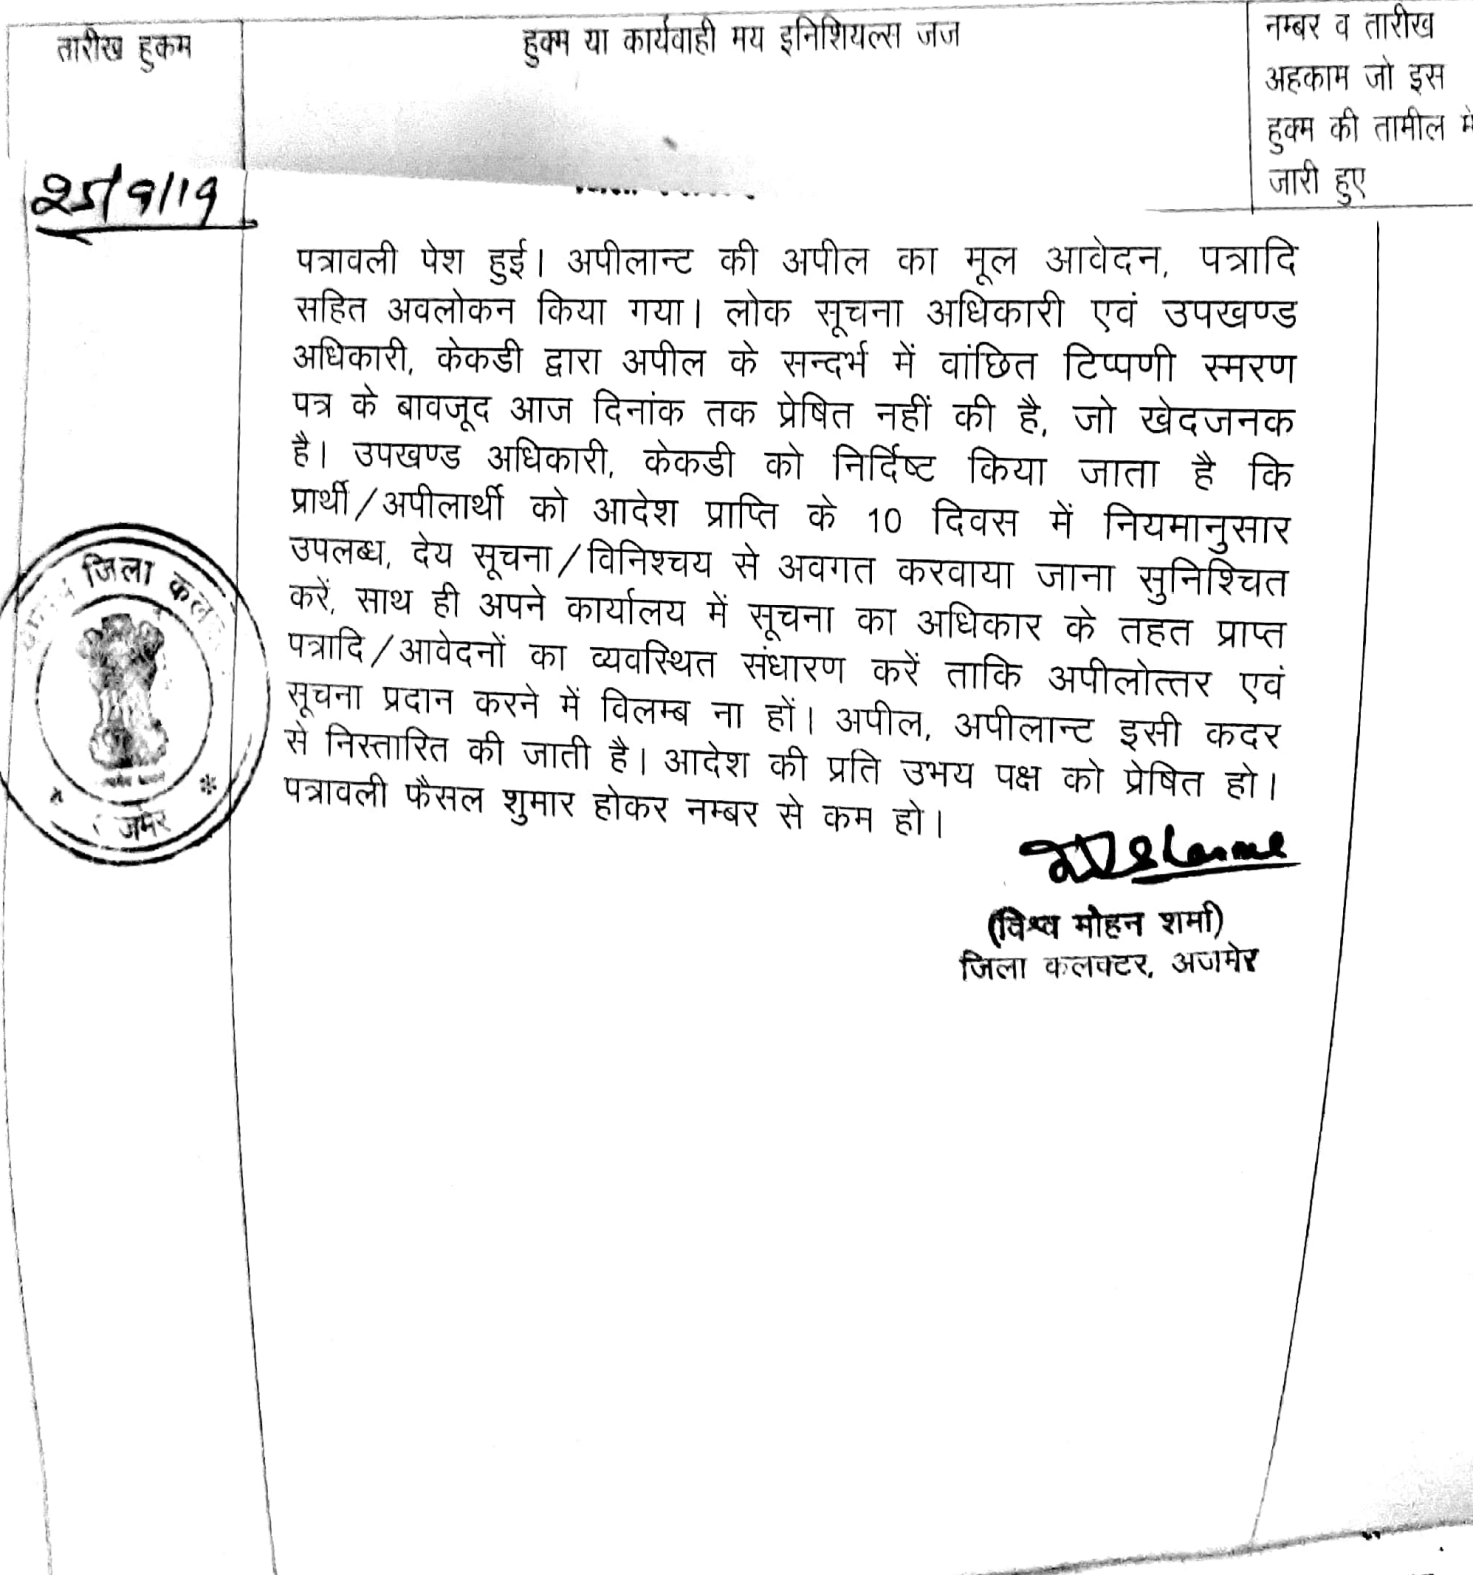 तारीख हुकम
हुक्म या कार्यवाही मय इनिशियल्स जज
नम्बर व तारीख
अहकाम जो इस
हुक्म की तामील में
जारी हुए
25/9/19
पत्रावली पेश हुई। अपीलान्ट की अपील का मूल आवेदन, पत्रादि
सहित अवलोकन किया गया। लोक सूचना अधिकारी एवं उपखण्ड
अधिकारी, केकडी द्वारा अपील के सन्दर्भ में वांछित टिप्पणी स्मरण
पत्र के बावजूद आज दिनांक तक प्रेषित नहीं की है, जो खेदजनक
है। उपखण्ड अधिकारी, केकडी को निर्दिष्ट किया जाता है कि
प्रार्थी/अपीलार्थी को आदेश प्राप्ति के 10 दिवस में नियमानुसार
उपलब्ध, देय सूचना/विनिश्चय से अवगत करवाया जाना सुनिश्चित
करें, साथ ही अपने कार्यालय में सूचना का अधिकार के तहत प्राप्त
पत्रादि/आवेदनों का व्यवस्थित संधारण करें ताकि अपीलोत्तर एवं
सूचना प्रदान करने में विलम्ब ना हों। अपील, अपीलान्ट इसी कदर
से निस्तारित की जाती है। आदेश की प्रति उभय पक्ष को प्रेषित हो।
पत्रावली फैसल शुमार होकर नम्बर से कम हो।
जिला कल
जमेर
(विश्व मोहन शर्मा)
जिला कलक्टर, अजमेर